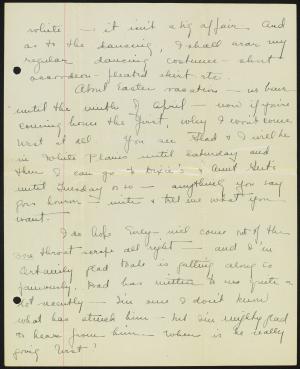 white — it isn't a big affair. And
as to the dancing, I shall wear my
regular dancing costume — short
accordeon-pleated skirt etc.
About Easter vacation — us have
until the ninth of April — now if you're
coming home the first, why I won't come
West at all. You see Glad & I will be
in White Plains until Saturday and
then I can go to Dixie's & Aunt
until Tuesday or so — anything you say
goes — write & tell me what you
want.
I do hope Emly will come out of the
throat scrape all right — and I'm
certainly glad is getting along so
famously. Dad has written to me quite a
lot recently — I'm sure I don't know
what has struck him — but I'm mighty glad
to hear from him. When is he really
going West?